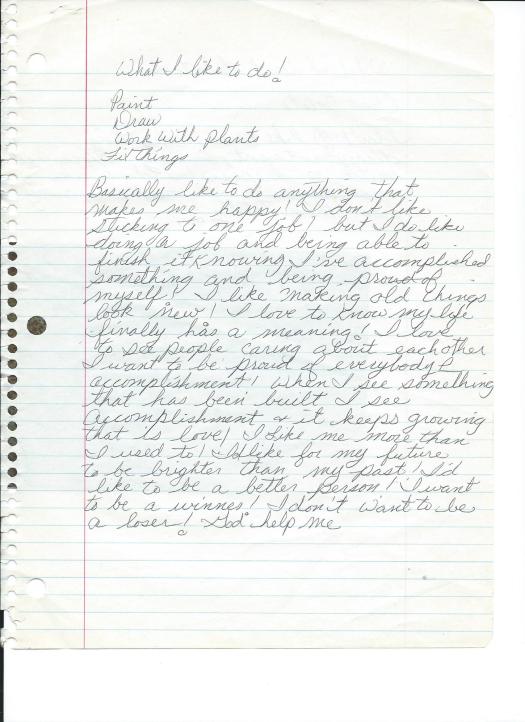 What I like to do!
Paint
Draw
Work With plants
Fix things
Basically like to do anything that
makes me happy! I don't like
sticking to one job! but I do like
doing a job and being able to
finish it knowing I've accomplished
something and being proud of
myself! I like making old things
look new! I love to know my life
finally has a meaning! I love
to see people caring about each other
I want to be proud of everybody
accomplishment! When I see something
that has been built I see
accomplishment & it keeps growing
that is love! I like me more than
I used to! I'd like for my future
to be brighter than my past! I'd
like to be a better person! I want
to be a winner! I don't want to be
a loser! God help me